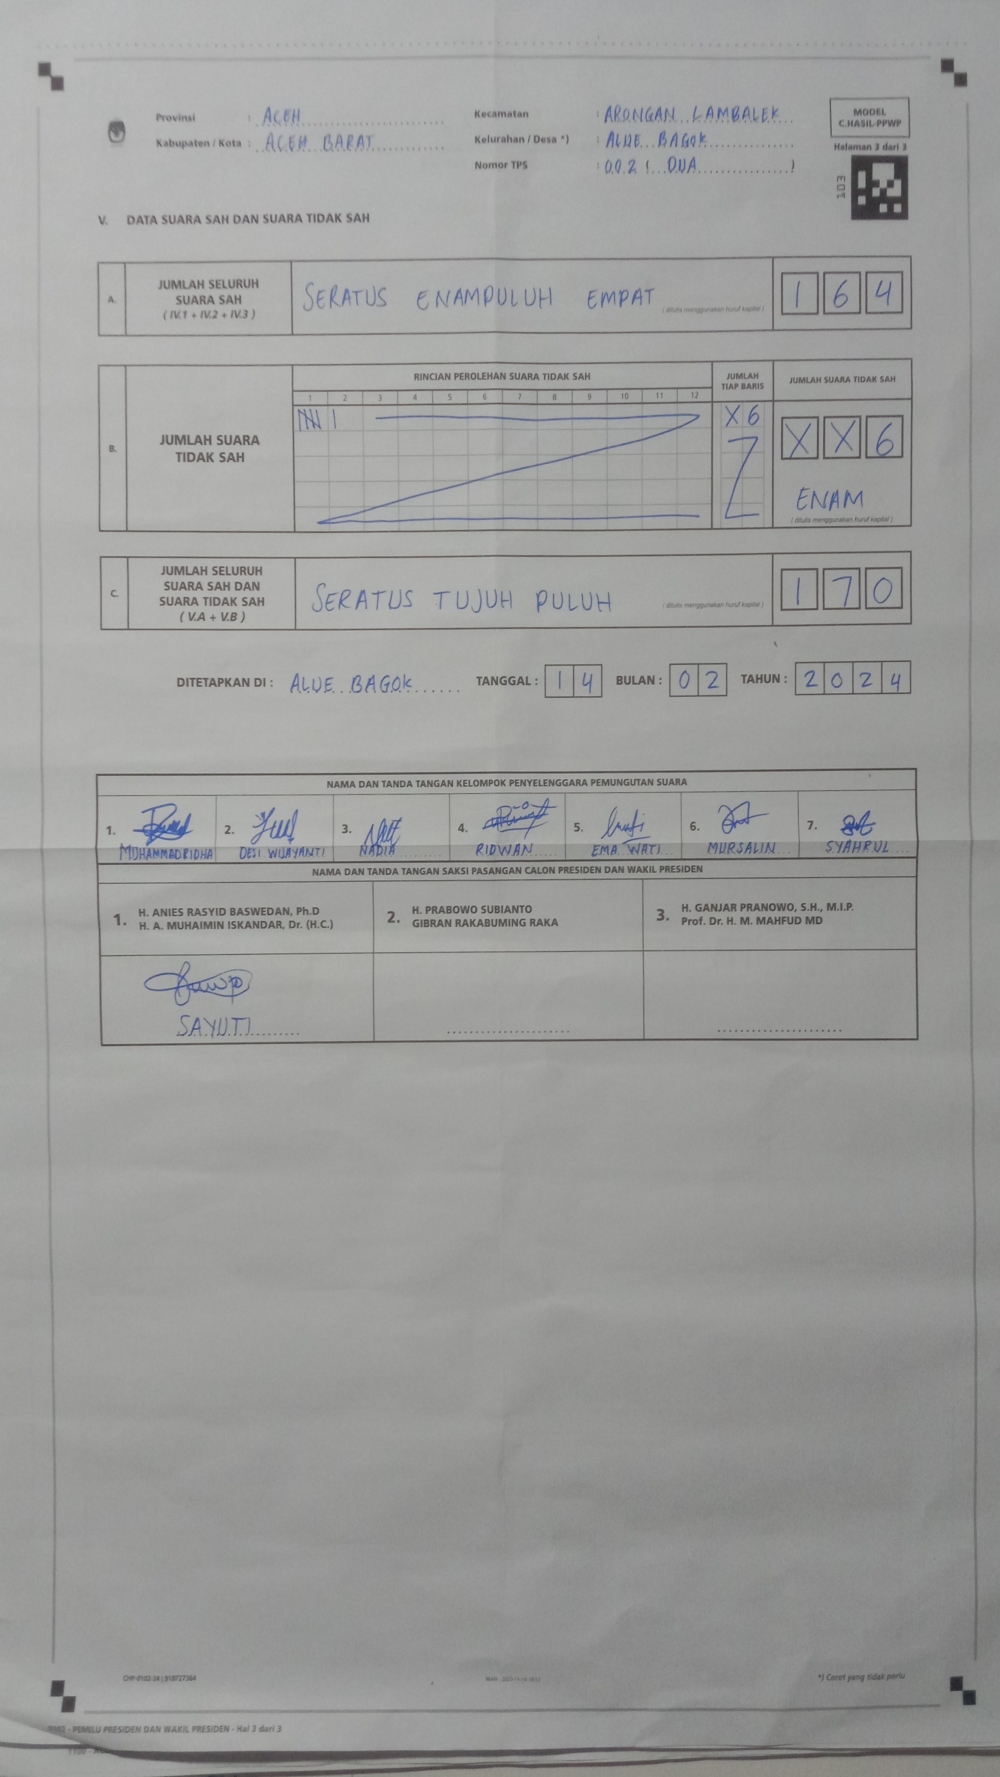 Provinsi : ACEH
Kabupaten / Kota : ACEH BARAT
Kecamatan : ARONGAN LAMBALEK
Kelurahan / Desa *) : ALUE BAGOK
Nomor TPS : 002 ( DUA )
MODEL
C.HASIL-PPWP
Halaman 3 dari 3
103
V. DATA SUARA SAH DAN SUARA TIDAK SAH
A. JUMLAH SELURUH
SUARA SAH
( IV.1 + IV.2 + IV.3 )
SERATUS ENAMPULUH EMPAT
( ditulis menggunakan huruf kapital )
1 6 4
B. JUMLAH SUARA
TIDAK SAH
RINCIAN PEROLEHAN SUARA TIDAK SAH
1 2 3 4 5 6 7 8 9 10 11 12
JUMLAH
TIAP BARIS
X 6
JUMLAH SUARA TIDAK SAH
X X 6
ENAM
( ditulis menggunakan huruf kapital )
C. JUMLAH SELURUH
SUARA SAH DAN
SUARA TIDAK SAH
( V.A + V.B )
SERATUS TUJUH PULUH
( ditulis menggunakan huruf kapital )
1 7 0
DITETAPKAN DI : ALUE BAGOK TANGGAL : 1 4 BULAN : 0 2 TAHUN : 2 0 2 4
NAMA DAN TANDA TANGAN KELOMPOK PENYELENGGARA PEMUNGUTAN SUARA
1. 2. 3. 4. 5. 6. 7.
MUHAMMAD RIDHA DESI WIJAYANTI NADIA RIDWAN EMA WATI MURSALIN SYAHRUL
NAMA DAN TANDA TANGAN SAKSI PASANGAN CALON PRESIDEN DAN WAKIL PRESIDEN
1. H. ANIES RASYID BASWEDAN, Ph.D
H. A. MUHAIMIN ISKANDAR, Dr. (H.C.)
2. H. PRABOWO SUBIANTO
GIBRAN RAKABUMING RAKA
3. H. GANJAR PRANOWO, S.H., M.I.P.
Prof. Dr. H. M. MAHFUD MD
SAYUTI
*) Coret yang tidak perlu
PEMILU PRESIDEN DAN WAKIL PRESIDEN - Hal 3 dari 3